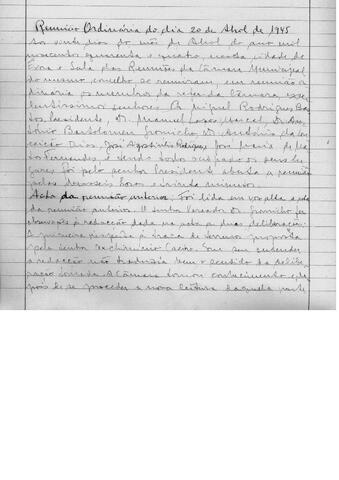 Reunião Ordinária do dia 20 de Abril de 1945
Aos vinte dias do mês de Abril do ano mil
novecentos quarenta e quatro, nesta cidade de
Evora e Sala das Reuniões da Câmara Municipal
do mesmo concelho se reuniram, em reunião o
dinária os membros da referida Câmara exce
lentissimos senhores Dr. Miguel Rodrigues Bas
tos, Presidente, Dr. Manuel Marçal, Dr. An
tónio Bartolomeu Gromicho, Dr. António da Con
ceição Dias, José Agostinho Rodrigues, José Maria de Ma
tos Fernandes e sendo todos ocupado os seus lu
gares foi pelo senhor Presidente aberta a reunião
pelas dezasseis horas e trinta minutos.
Acta da reunião anterior: Foi lida em voz alta a acta
da reunião anterior. O senhor Vereador Dr. Gromicho fez
observações à redacção dada na acta a duas deliberações.
A primeira respeita à troca de terreno proposta
pelo senhor Caeiro. Em seu entender
a redacção não traduzia bem o sentido da delibe
ração tomada. A Câmara tomou conhecimento e, de
pois de se proceder a nova leitura daquela parte